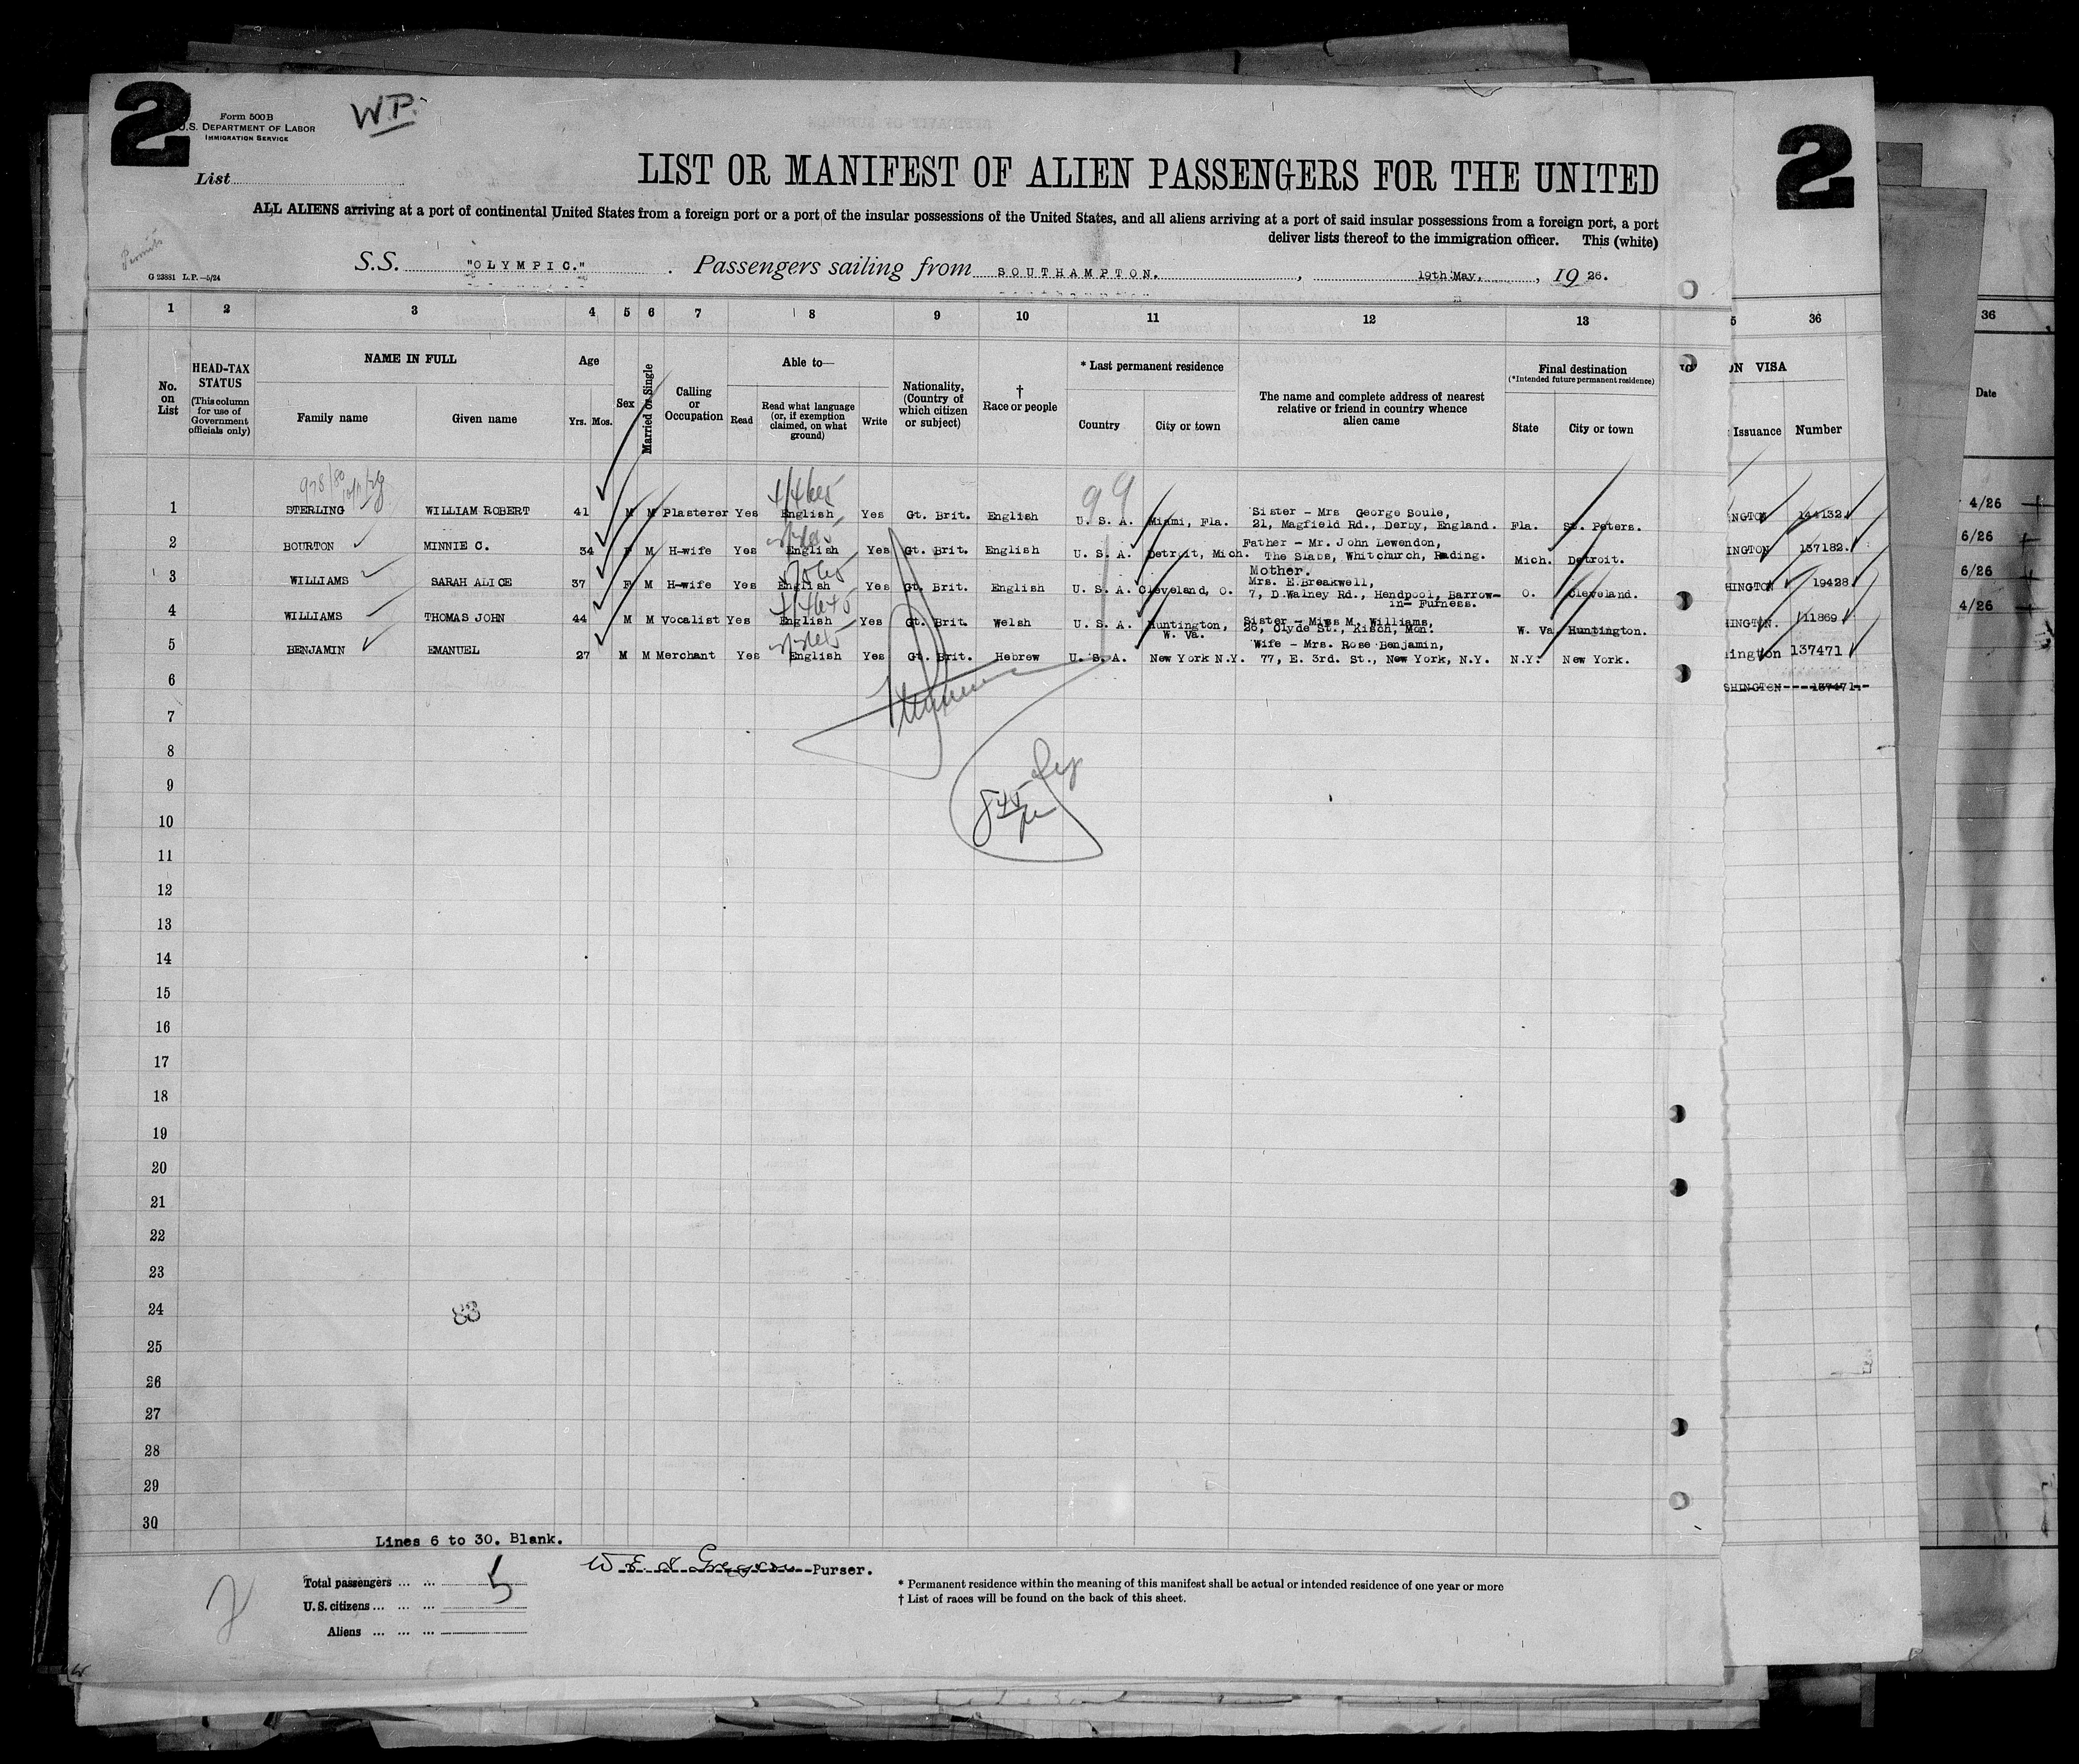 2
Form 500B
U.S. DEPARTMENT OF LABOR
IMMIGRATION SERVICE
W.P.
2
List
LIST OR MANIFEST OF ALIEN PASSENGERS FOR THE UNITED
ALL ALIENS arriving at a port of continental United States from a foreign port or a port of the insular possessions of the United States, and all aliens arriving at a port of said insular possessions from a foreign port, a port
deliver lists thereof to the immigration officer. This (white)
Permits
G 23881 L.P.—5/24
S.S. "OLYMPIC." . Passengers sailing from SOUTHAMPTON. , 19th May, , 19 26.
1 2 3 4 5 6 7 8 9 10 11 12 13 36 36
No. on List
HEAD-TAX STATUS
(This column for use of Government officials only)
NAME IN FULL
Family name Given name
Age
Yrs. Mos.
Sex
Married or Single
Calling or Occupation
Able to—
Read
Read what language (or, if exemption claimed, on what ground)
Write
Nationality, (Country of which citizen or subject)
† Race or people
* Last permanent residence
Country City or town
The name and complete address of nearest relative or friend in country whence alien came
Final destination
(*Intended future permanent residence)
State City or town
ON VISA
Issuance Number
Date
99
1 STERLING WILLIAM ROBERT 41 M M Plasterer Yes English Yes Gt. Brit. English U. S. A. Miami, Fla. Sister - Mrs George Soule,
21, Magfield Rd., Derby, England. Fla. St. Peters. NGTON 144132 4/26
2 BOURTON MINNIE C. 34 F M H-wife Yes English Yes Gt. Brit. English U. S. A. Detroit, Mich. Father - Mr. John Lewendon,
The Slabs, Whitchurch, Rading. Mich. Detroit. INGTON 137182. 6/26
3 WILLIAMS SARAH ALICE 37 F M H-wife Yes English Yes Gt. Brit. English U. S. A. Cleveland, O. Mother.
Mrs. E.Breakwell,
7, D.Walney Rd., Hendpool, Barrow-
in- Furness. O. Cleveland. HINGTON 19428 6/26
4 WILLIAMS THOMAS JOHN 44 M M Vocalist Yes English Yes Gt. Brit. Welsh U. S. A. Huntington,
W. Va. Sister - Miss M. Williams,
26, Clyde St., Risch, Mon. W. Va. Huntington. HINGTON. 111869 4/26
5 BENJAMIN EMANUEL 27 M M Merchant Yes English Yes Gt. Brit. Hebrew U. S. A. New York N.Y. Wife - Mrs. Rose Benjamin,
77, E. 3rd. St., New York, N.Y. N.Y. New York. ington 137471
6 SHINGTON 137471
7
8
9
10
11
12
13
14
15
16
17
18
19
20
21
22
23
24
83
25
26
27
28
29
30
Lines 6 to 30. Blank.
Purser.
Total passengers ... ... 5
U.S. citizens ... ... ...
Aliens ... ... ...
* Permanent residence within the meaning of this manifest shall be actual or intended residence of one year or more
† List of races will be found on the back of this sheet.